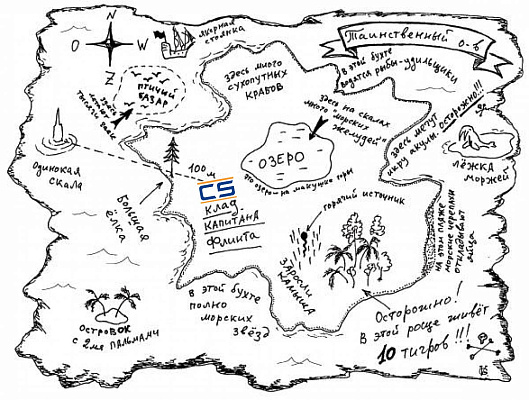 Таинственный о-в
N
O
W
Z
якорная стоянка
птичий
базар
здесь много
сухопутных
крабов
в этой бухте
водятся рыбы-удильщики
Осторожно!!!
здесь мечут
икру акулы
здесь на скалах
много морских
желудей
лёжка
моржей
одинокая
скала
100 м
CS
клад
капитана
Флинта
озеро
это озеро на макушке горы
большая
ёлка
горячий источник
на этом пляже
морские черепахи
откладывают
яйца
в этой бухте
полно
морских
звёзд
заросли
Осторожно!
В этой роще живёт
10 тигров!!!
островок
с 2мя пальмами